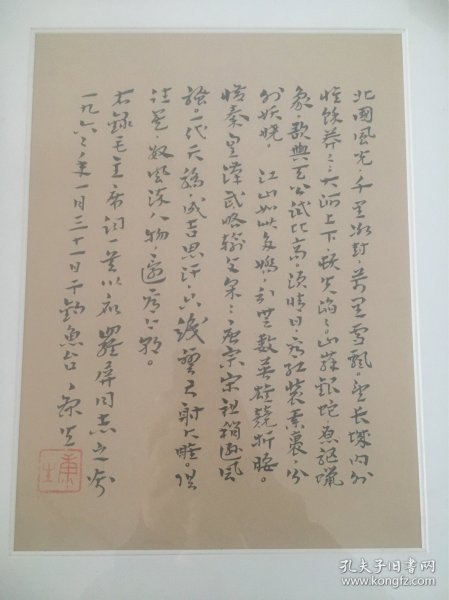 北国风光，千里冰封，万里雪飘。望长城内外
惟馀莽々，大河上下，顿失滔々。山舞银蛇，原驰蜡
象，欲与天公试比高。须晴日，看红装素裹，分
外妖娆。江山如此多娇，引无数英雄竞折腰。
惜秦皇汉武，略输文采，唐宗宋祖，稍逊风
骚。一代天骄，成吉思汗，只识弯弓射大雕。俱
往矣，数风流人物，还看今朝。
右录毛主席词一首以应罗屏同志之嘱
一九六二年一月三十一日于钓鱼台 康生
康生
孔夫子旧书网
www.kongfz.com